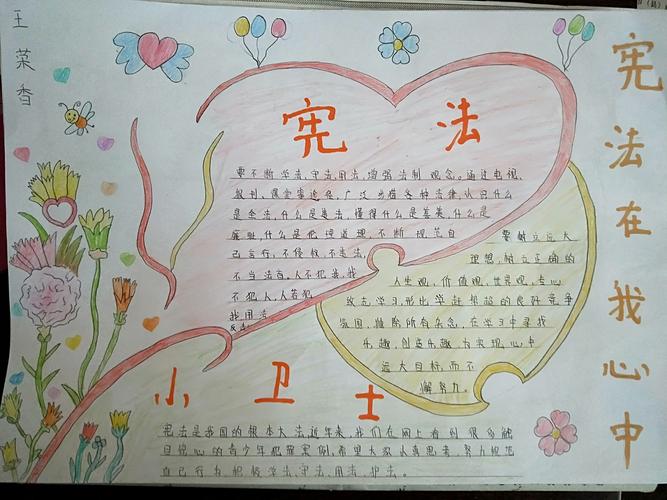 王荣香
宪法在我心中
宪法
要不断学法、守法、用法,增强法制观念。通过电视、
报刊、课堂等途径,广泛步猎各种法律,认识什么
是合法,什么是违法,懂得什么是善美,什么是
什么是伦理道理,不断规范自
己言行,不侵权,不违法,
不当法盲。人不犯法,我
不犯人,人若犯
我用法
要树立远大
理想,树立正确的
人生观,价值观,世界观,专心
致志学习,形比学赶帮超的良好竞争
氛围,排除所有杂念,在学习中寻找
乐趣,创造乐趣,为实现心中
远大目标,而不
懈努力。
小卫士
宪法是我国的根本大法,近年来,我们在网上看到很多触
目惊心的青少年犯罪案例,希望大家认真思考,努力规范
自己行为,积极学法、守法、用法、护法。